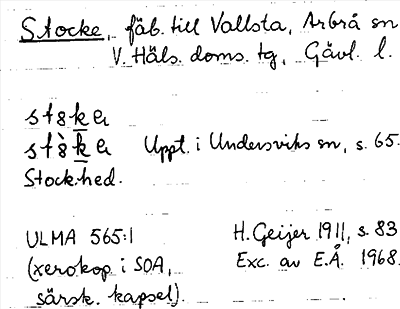 Stocke, fäb. till Vallsta, Arbrå sn
V. Häls. doms. tg, Gävl. l.
Uppt. i Undersviks sn, s. 65.
Stock.hed.
ULMA 565:1 H. Geijer 1911, s. 83
(xerokop i SOA, Exc. av E.Å. 1968.
särsk. kapsel).